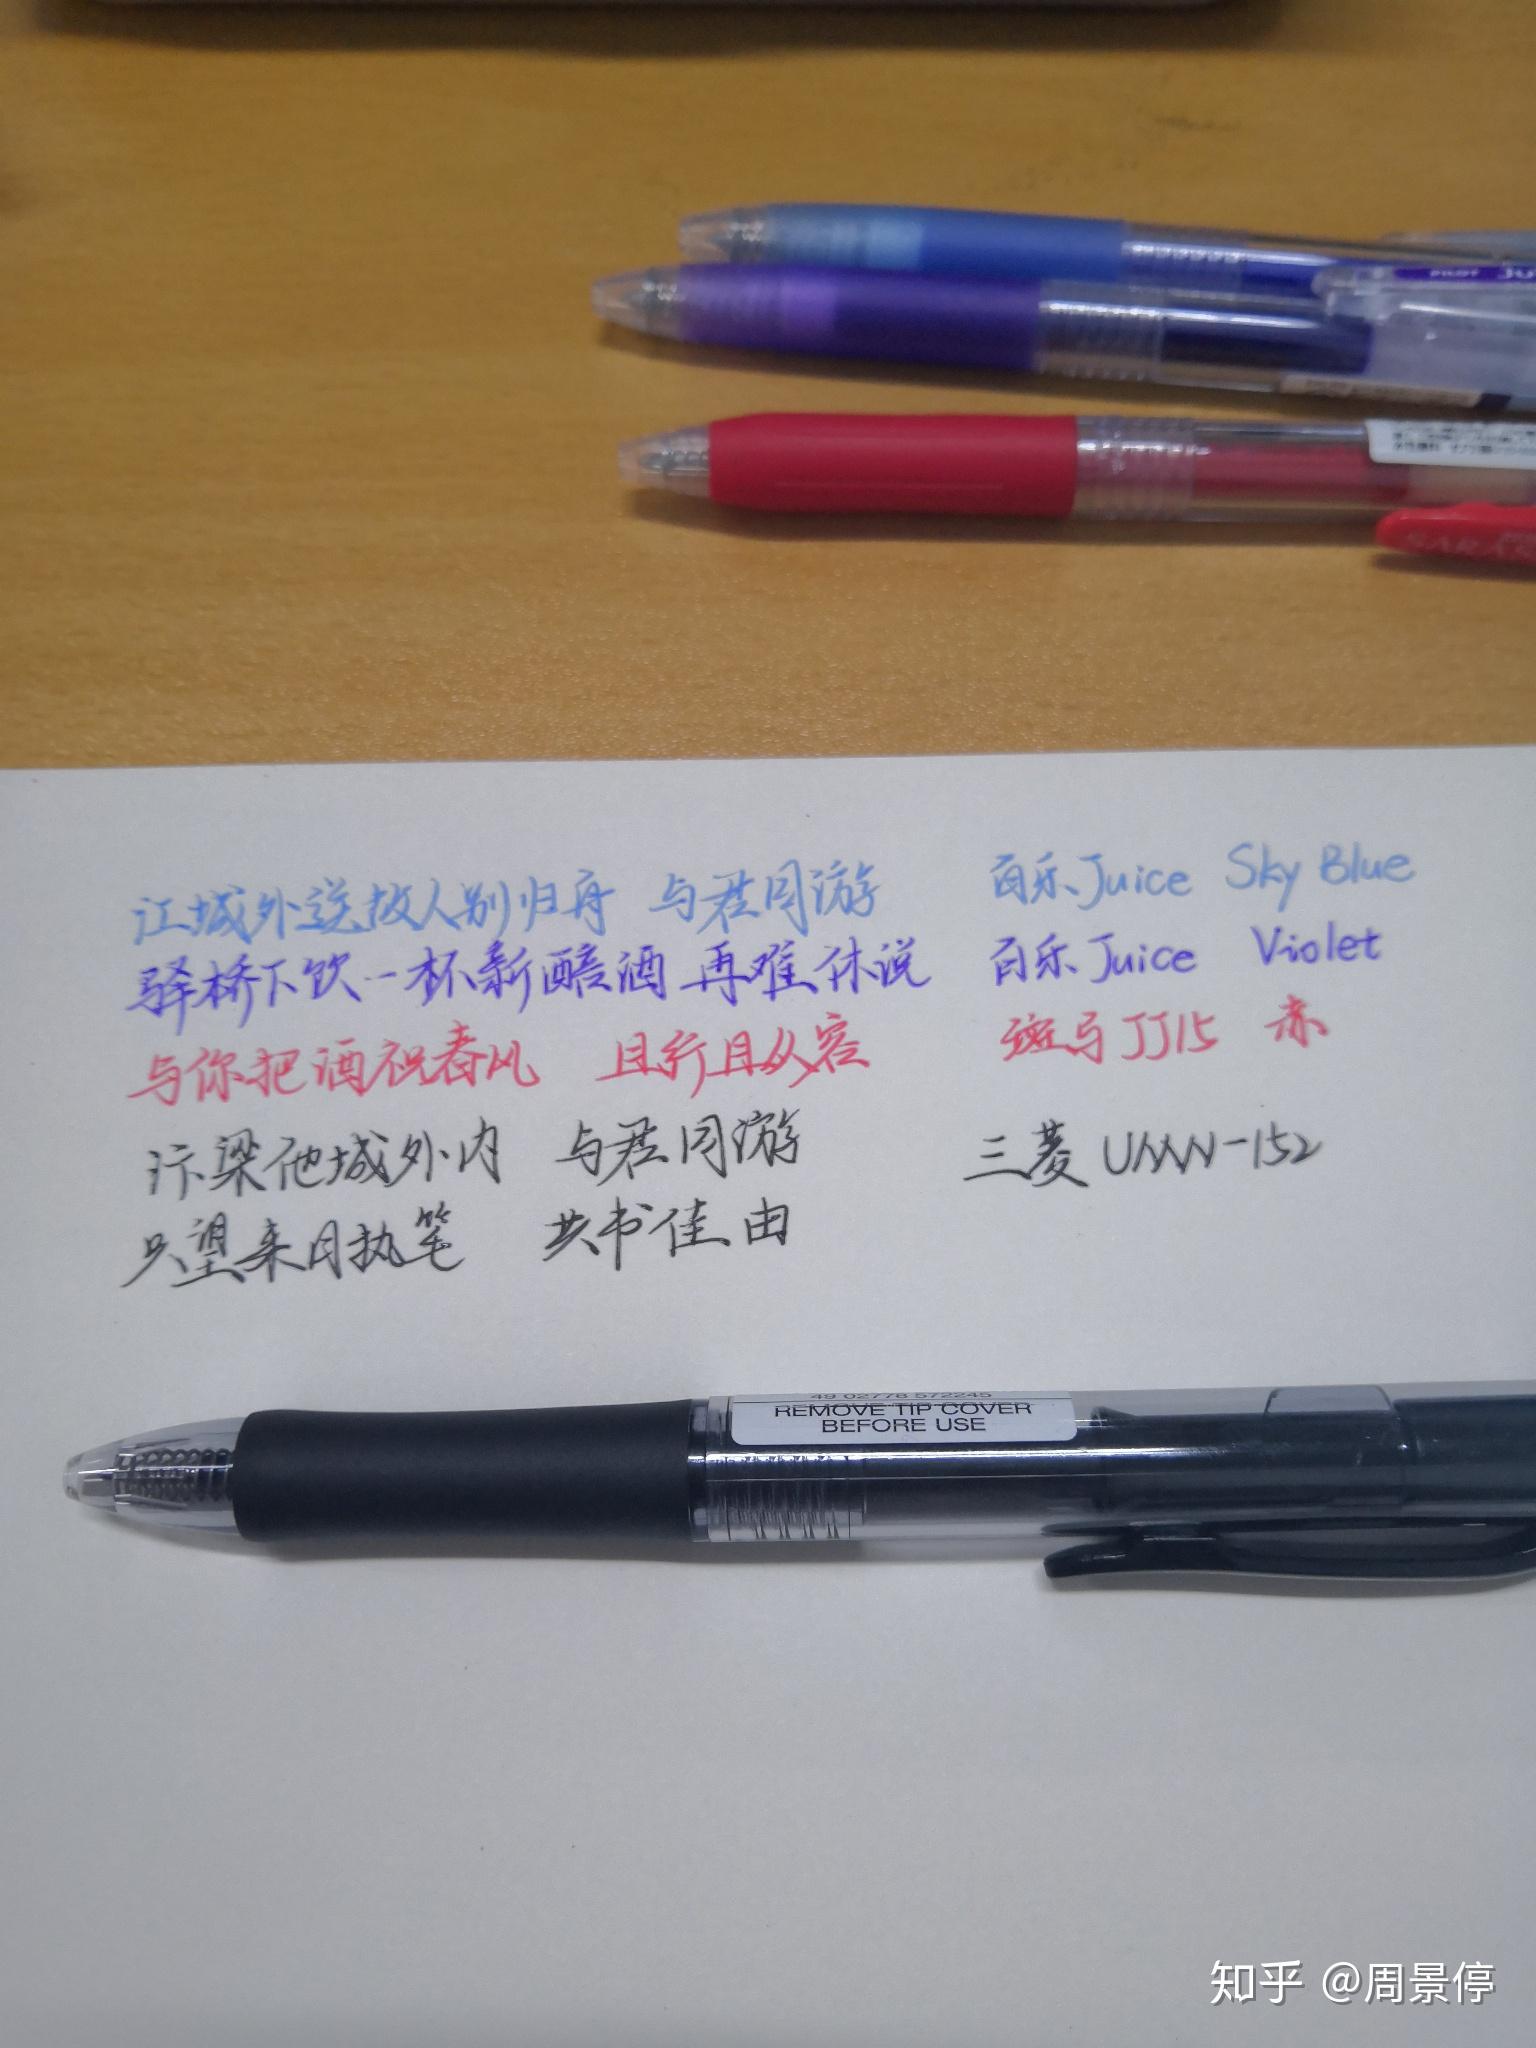 PILOT Ju
SARAS
江城外送故人别归舟 与君同游 百乐Juice Sky Blue
驿桥下饮一杯新醅酒 再难休说 百乐Juice Violet
与你把酒祝春风 且行且从容 斑马JJ15 赤
汴梁他城外内 与君同游 三菱UMN-152
只望来月执笔 共书佳由
49 02778 572245
REMOVE TIP COVER
BEFORE USE
知乎 @周景停